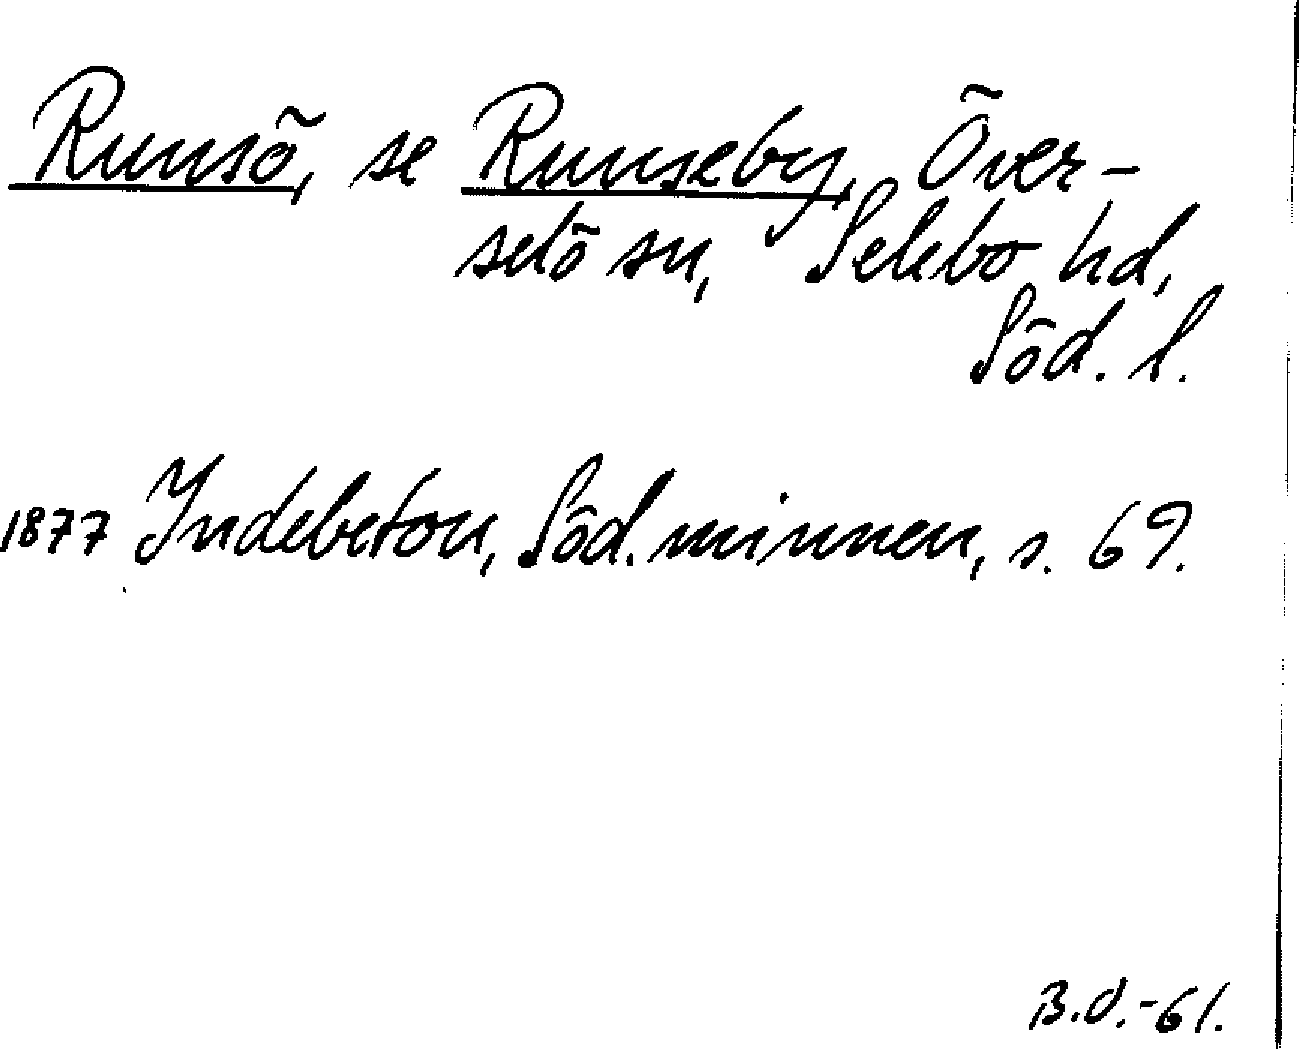 Runsö, se Runseby, Över-
selö sn, Selebo hd,
Söd. l.
1877 Indebetou, Söd. minnen, s. 69.
B.d.-61.